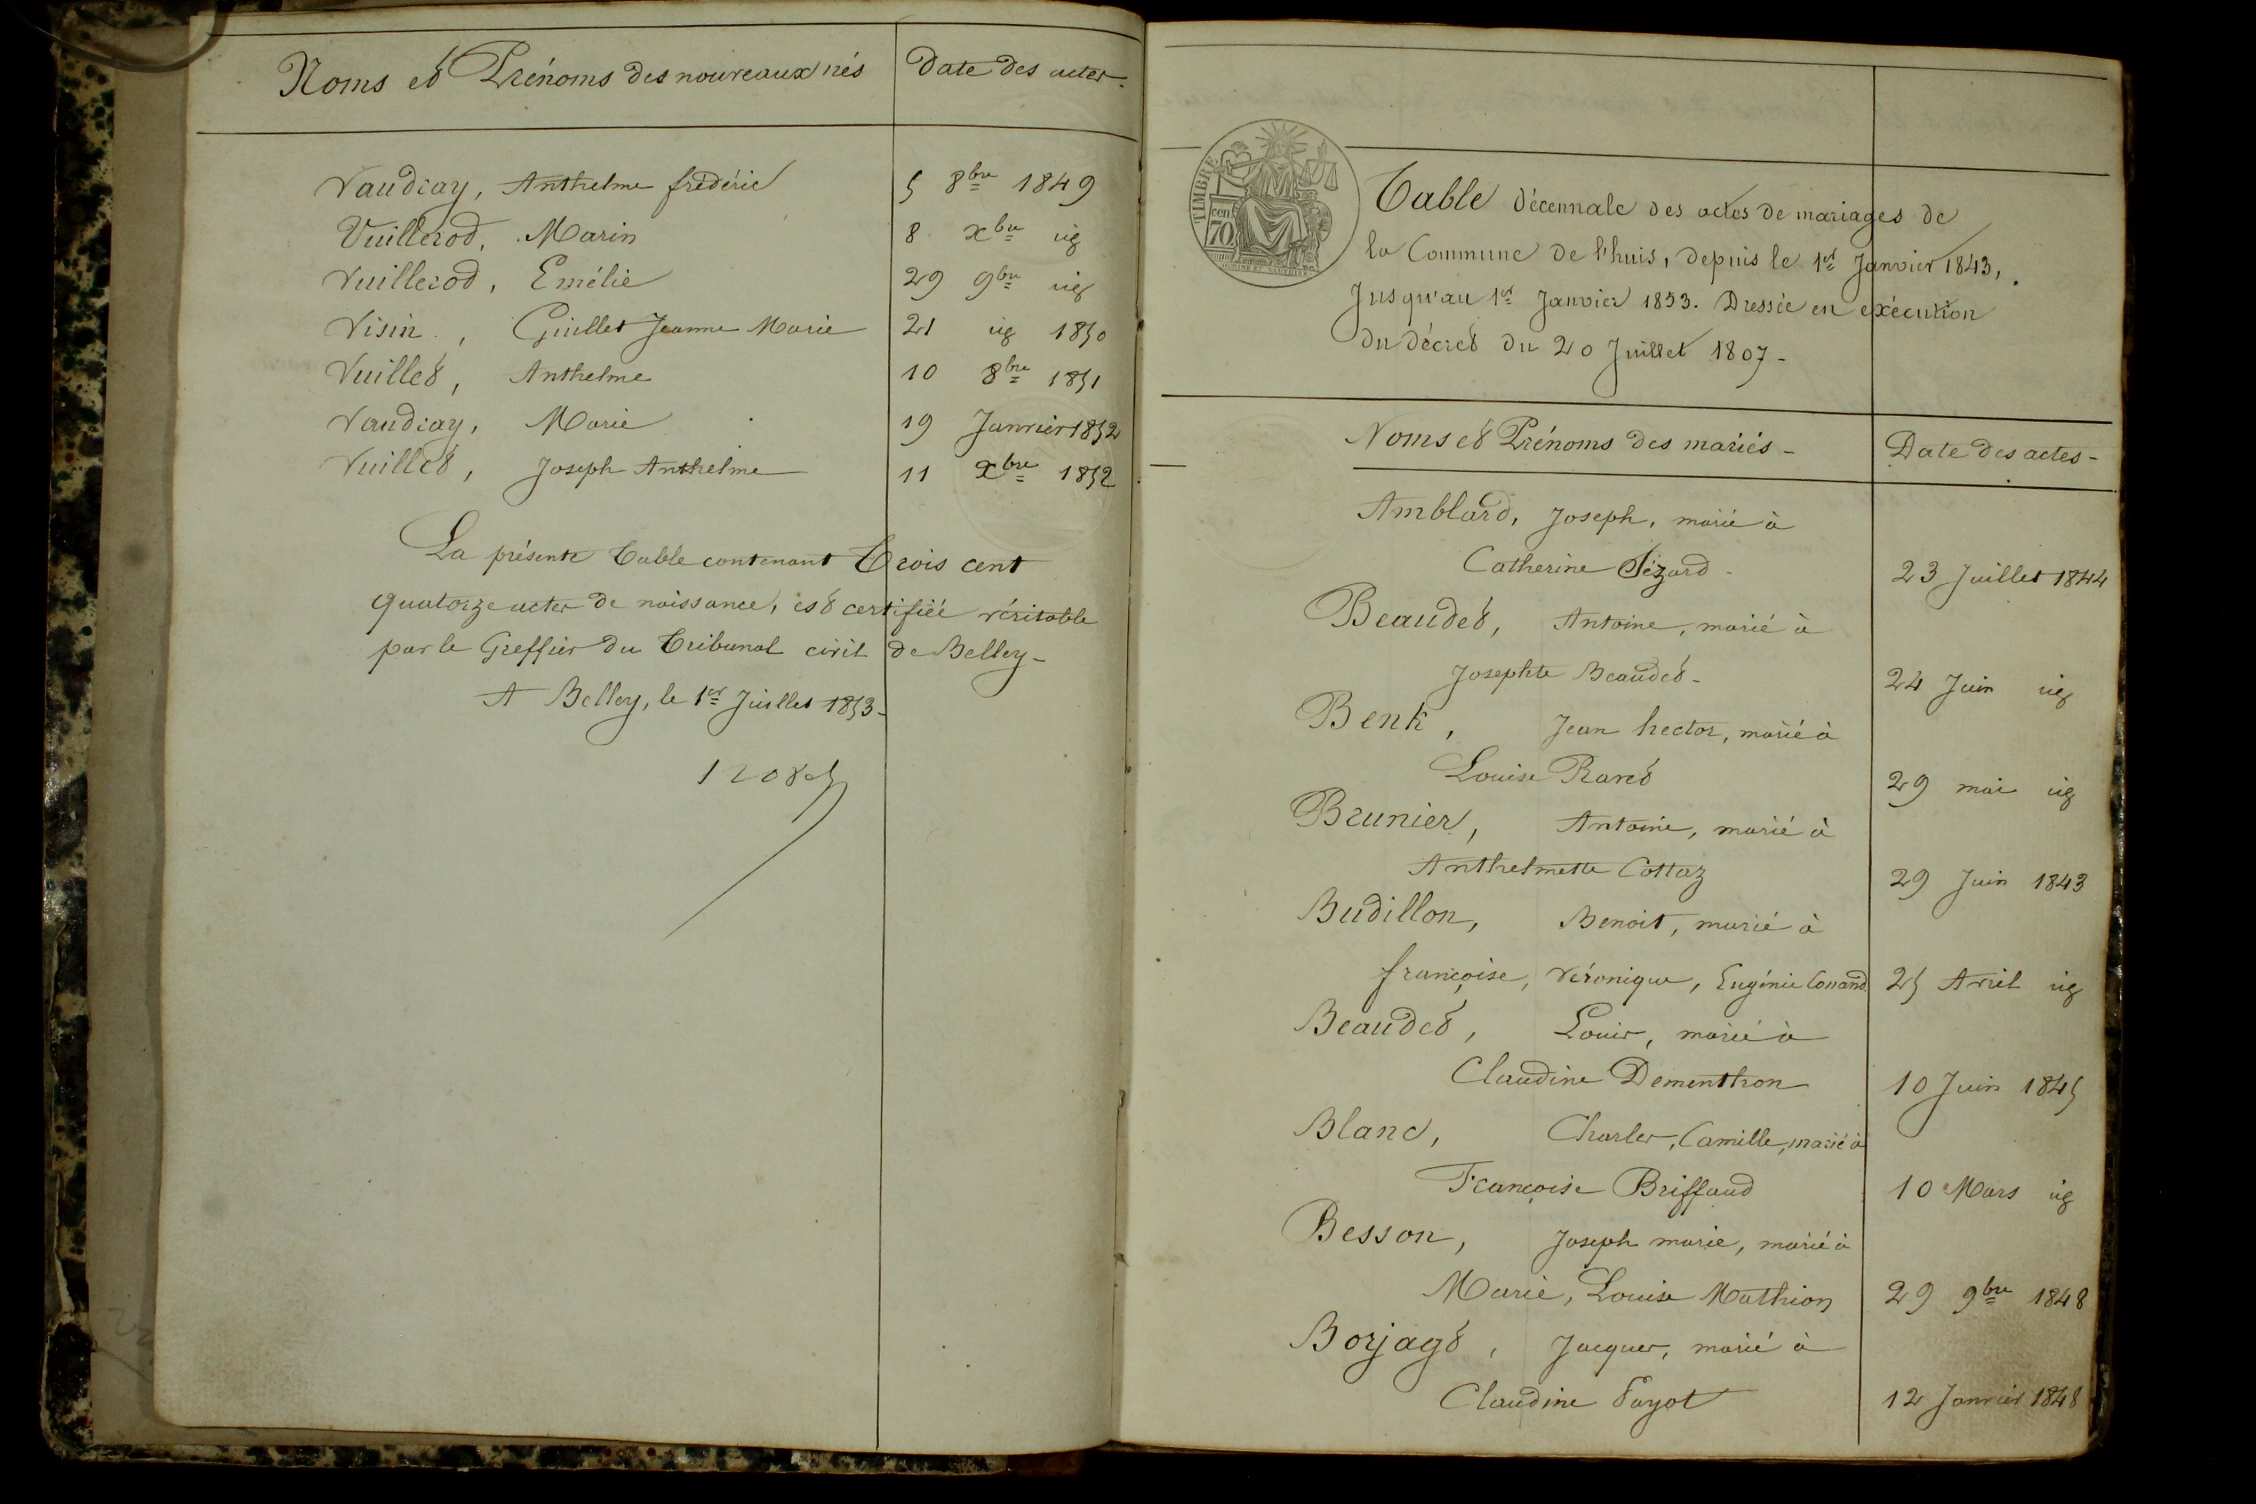 Noms et Prénoms des nouveaux nés
Date des actes
Vaudray, Anthelme frédéric 5 8bre 1849
Vuillerod, Marin 8 xbre id
Vuillerod, Emélie 29 9bre id
Visin, Guillet Jeanne Marie 21 id 1850
Vuillet, Anthelme 10 8bre 1851
Vaudray, Marie 19 Janvier 1852
Vuillet, Joseph Anthelme 11 xbre 1852
La présente Table contenant Trois cent
quatorze actes de naissance, est certifiée véritable
par le Greffier du Tribunal civil de Belley-
A Belley, le 1er Juillet 1853-
TIMBRE
cen
70
Table décennale des actes de mariages de
la Commune de l'huis, depuis le 1er Janvier 1843,
Jusqu'au 1er Janvier 1853. Dressée en exécution
du décret du 20 Juillet 1807-
Noms et Prénoms des mariés-
Date des actes-
Amblard, Joseph, marié à
Catherine 23 Juillet 1844
Beaudet, Antoine, marié à
Josephte Beaudet- 24 Juin id
Benk, Jean hector, marié à
Louise Ravet 29 mai id
Brunier, Antoine, marié à
Anthelmette Cottaz 29 Juin 1843
Budillon, Benoit, marié à
françoise, Véronique, Eugénie Conand 25 Avril id
Beaudet, Louis, marié à
Claudine Dementhon 10 Juin 1845
Blanc, Charles, Camille, marié à
Françoise Briffaud 10 Mars id
Besson, Joseph marie, marié à
Marie, Louise Mathion 29 9bre 1848
Borjagt, Jacques, marié à
Claudine Payot 12 Janvier 1848